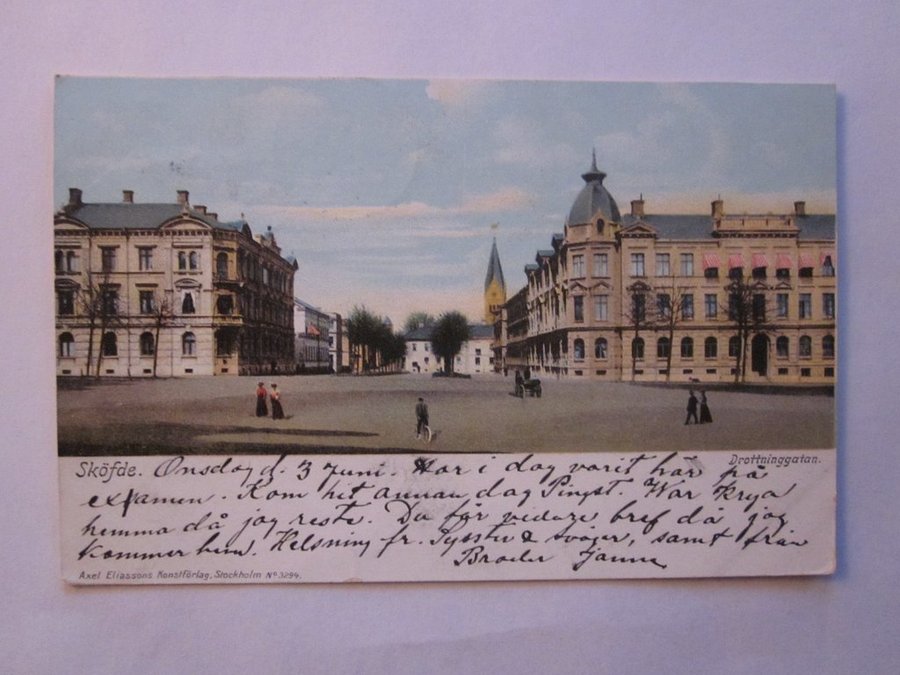 Sköfde.
Drottninggatan.
Onsdag d. 3 Juni. Har i dag varit här på
examen. Kom hit annan dag Pingst. War krya
hemma då jag reste. Du får vidare bref då jag
kommer hem. Helsning fr. Syster & Svåger, samt från
Broder Janne
Axel Eliassons Konstförlag, Stockholm Nº 3294.